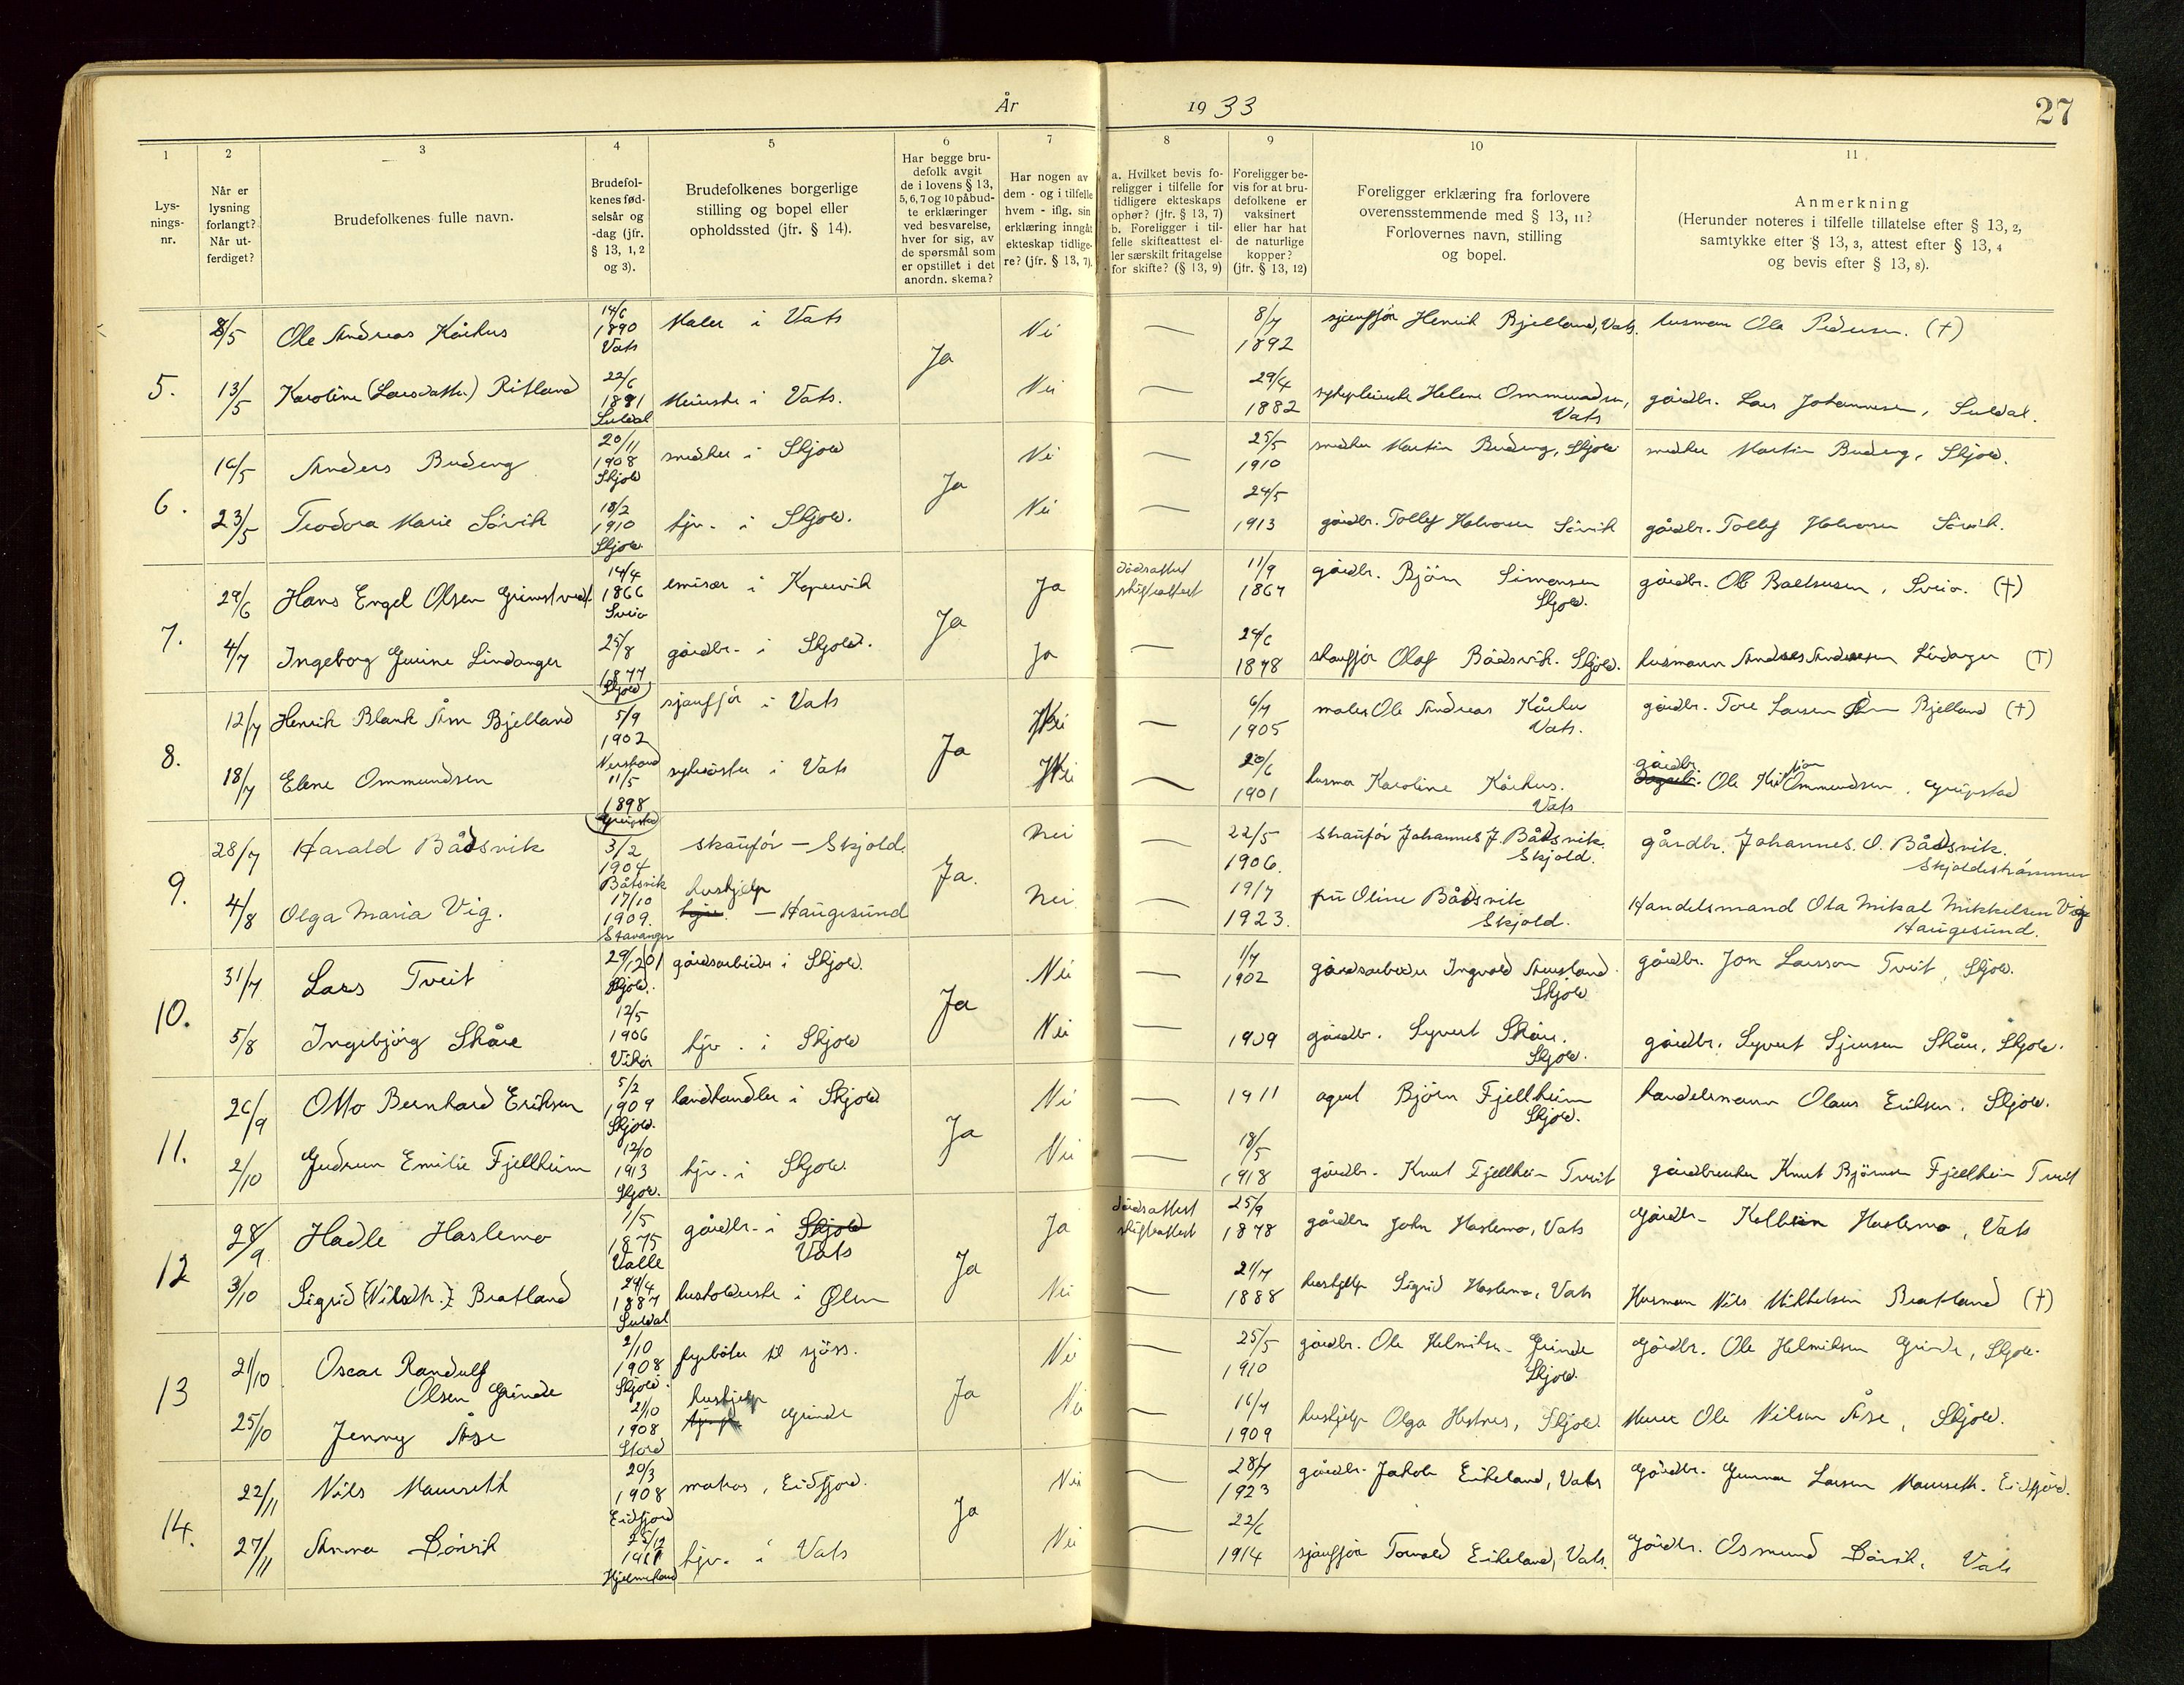 År 1933
27
1
2
3
4
5
6
7
8
9
10
11
Lys-
nings-
nr.
Når er
lysning
forlangt?
Når ut-
ferdiget?
Brudefolkenes fulle navn.
Brudefol-
kenes fød-
selsår og
-dag (jfr.
§ 13, 1, 2
og 3).
Brudefolkenes borgerlige
stilling og bopel eller
opholdssted (jfr. § 14).
Har begge bru-
defolk avgit
de i lovens § 13,
5, 6, 7 og 10 påbud-
te erklæringer
ved besvarelse,
hver for sig, av
de spørsmål som
er opstillet i det
anordn. skema?
Har nogen av
dem - og i tilfelle
hvem - iflg. sin
erklæring inngått
ekteskap tidlige-
re? (jfr. § 13, 7).
a. Hvilket bevis fo-
religger i tilfelle for
tidligere ekteskaps
ophør? (jfr. § 13, 7)
b. Foreligger i til-
felle skifteattest el-
ler særskilt fritagelse
for skifte? (§ 13, 9)
Foreligger be-
vis for at bru-
defolkene er
vaksinert
eller har hat
de naturlige
kopper?
(jfr. § 13, 12)
Foreligger erklæring fra forlovere
overensstemmende med § 13, 11?
Forlovernes navn, stilling
og bopel.
Anmerkning
(Herunder noteres i tilfelle tillatelse efter § 13, 2,
samtykke efter § 13, 3, attest efter § 13, 4
og bevis efter § 13, 8).
5.
8/5 Ole Andreas Kårhus 14/6 1890 Vats Maler i Vats Ja Nei — 8/7 1892 sjauffør Henrik Bjelland, Vats. husman Ole Pedersen. (†)
13/5 Karoline (Larsdatter) Ritland 22/6 1881 Suldal Meierske i Vats. Nei — 29/4 1882 sykepleierske Helene Ommundsen, Vats gårdbr. Lars Johannesen, Suldal.
6.
16/5 Anders Budeng 20/11 1908 Skjold snedker i Skjold Ja Nei — 25/5 1910 snedker Martin Budeng, Skjold snedker Martin Budeng, Skjold.
23/5 Teodora Marie Sørvik 18/2 1910 Skjold. hjv. i Skjold. Nei — 24/5 1913 gårdbr. Tollef Halvorsen Sørvik gårdbr. Tollef Halvorsen Sørvik.
7.
29/6 Hans Engel Olsen Grimstvedt 14/4 1866 Sveio emisær i Kopervik Ja Ja dødsattest skifteattest 11/9 1867 gårdbr. Bjørn Simonsen Skjold. gårdbr. Ole Baltsersen, Sveio. (†)
4/7 Ingeborg Gurine Lindanger 25/8 1877 Skjold gårdbr. i Skjold. Ja — 24/6 1878 skauffør Olaf Bådsvik. Skjold. husmann Andreas Andersen Lindanger (†)
8.
12/7 Henrik Blank Åm Bjelland 5/9 1902 Nerstrand sjauffør i Vats Ja Nei — 6/7 1905 maler Ole Andreas Kårhus Vats. gårdbr. Tore Larsen Åm Bjelland (†)
18/7 Elene Ommundsen 11/5 1898 sykesøster i Vats Nei — 20/6 1901 husmor Karoline Kårhus. Vats gårdbr. Ole Kristian Ommundsen,
9.
28/7 Harald Bådsvik 3/2 1904 Båtsvik skauför – Skjold. Ja. Nei — 22/5 1906. skauför Johannes J. Bådsvik. Skjold. gårdbr. Johannes O. Bådsvik. Skjoldestrømmen
4/8 Olga Maria Vig. 17/10 1909. Stavanger hushjelp hjv. – Haugesund Nei — 19/7 1923. fru Oline Bådsvik Skjold. Handelsmand Ola Mikal Mikkelsen Vig Haugesund.
10.
31/7 Lars Tveit 29/12 01 Skjold. gårdsarbeider i Skjold. Ja Nei — 1/7 1902 gårdsarbeider Ingvald Aursland. Skjold gårdbr. Jon Larsson Tveit, Skjold.
5/8 Ingebjørg Skåre 12/5 1906 Vikør hjv. i Skjold Nei — 1909 gårdbr. Syvert Skåre. Skjold. gårdbr. Syvert Sjursen Skåre, Skjold.
11.
26/9 Otto Bernhard Eriksen 5/2 1909 Skjold. landhandler i Skjold Ja Nei — 1911 agent Bjørn Fjellheim Skjold. handelsmann Olaus Eriksen, Skjold.
2/10 Gudrun Emilie Fjellheim 12/10 1913 Skjold. hjv. i Skjold. Nei — 18/5 1918 gårdbr. Knut Fjellheim Tveit gårdbruker Knut Bjørnsen Fjellheim Tveit
12
28/9 Hadle Haslemo 1/5 1875 Valle gårdbr. i Skjold Vats Ja Ja dødsattest skifteattest 25/9 1878 gårdbr. John Haslemo, Vats Gårdbr. Haslemo, Vats
3/10 Sigrid (Nilsdtr.) Bratland 24/4 1887 Suldal husholderske i Ølen Nei — 21/7 1888 hushjelp Sigrid Haslemo, Vats Husman Nils Mikkelsen Bratland (†)
13
21/10 Oscar Randulf Olsen Grinde 2/10 1908 Skjold. fyrbøter til sjøss. Ja Nei — 25/5 1910 gårdbr. Ole Helmiksen Grinde Skjold. Gårdbr. Ole Helmiksen Grinde, Skjold.
25/10 Jenny Åse 21/10 1908 Stord hushjelp Grinde Nei — 16/7 1909 hushjelp Olga Hestnes, Skjold. Murer Ole Nilsen Åse, Skjold.
14.
22/11 Nils Maurseth 20/3 1908 Eidfjord matros, Eidfjord. Ja Nei — 28/7 1923 gårdbr. Jakob Eikeland, Vats Gårdbr. Gunnar Larsen Maurseth. Eidfjord.
27/11 Anna Børvik 25/12 1911 Hjelmeland hjv. i Vats Nei — 22/6 1914 sjauffør Torvald Eikeland, Vats. Gårdbr. Osmund Børvik, Vats